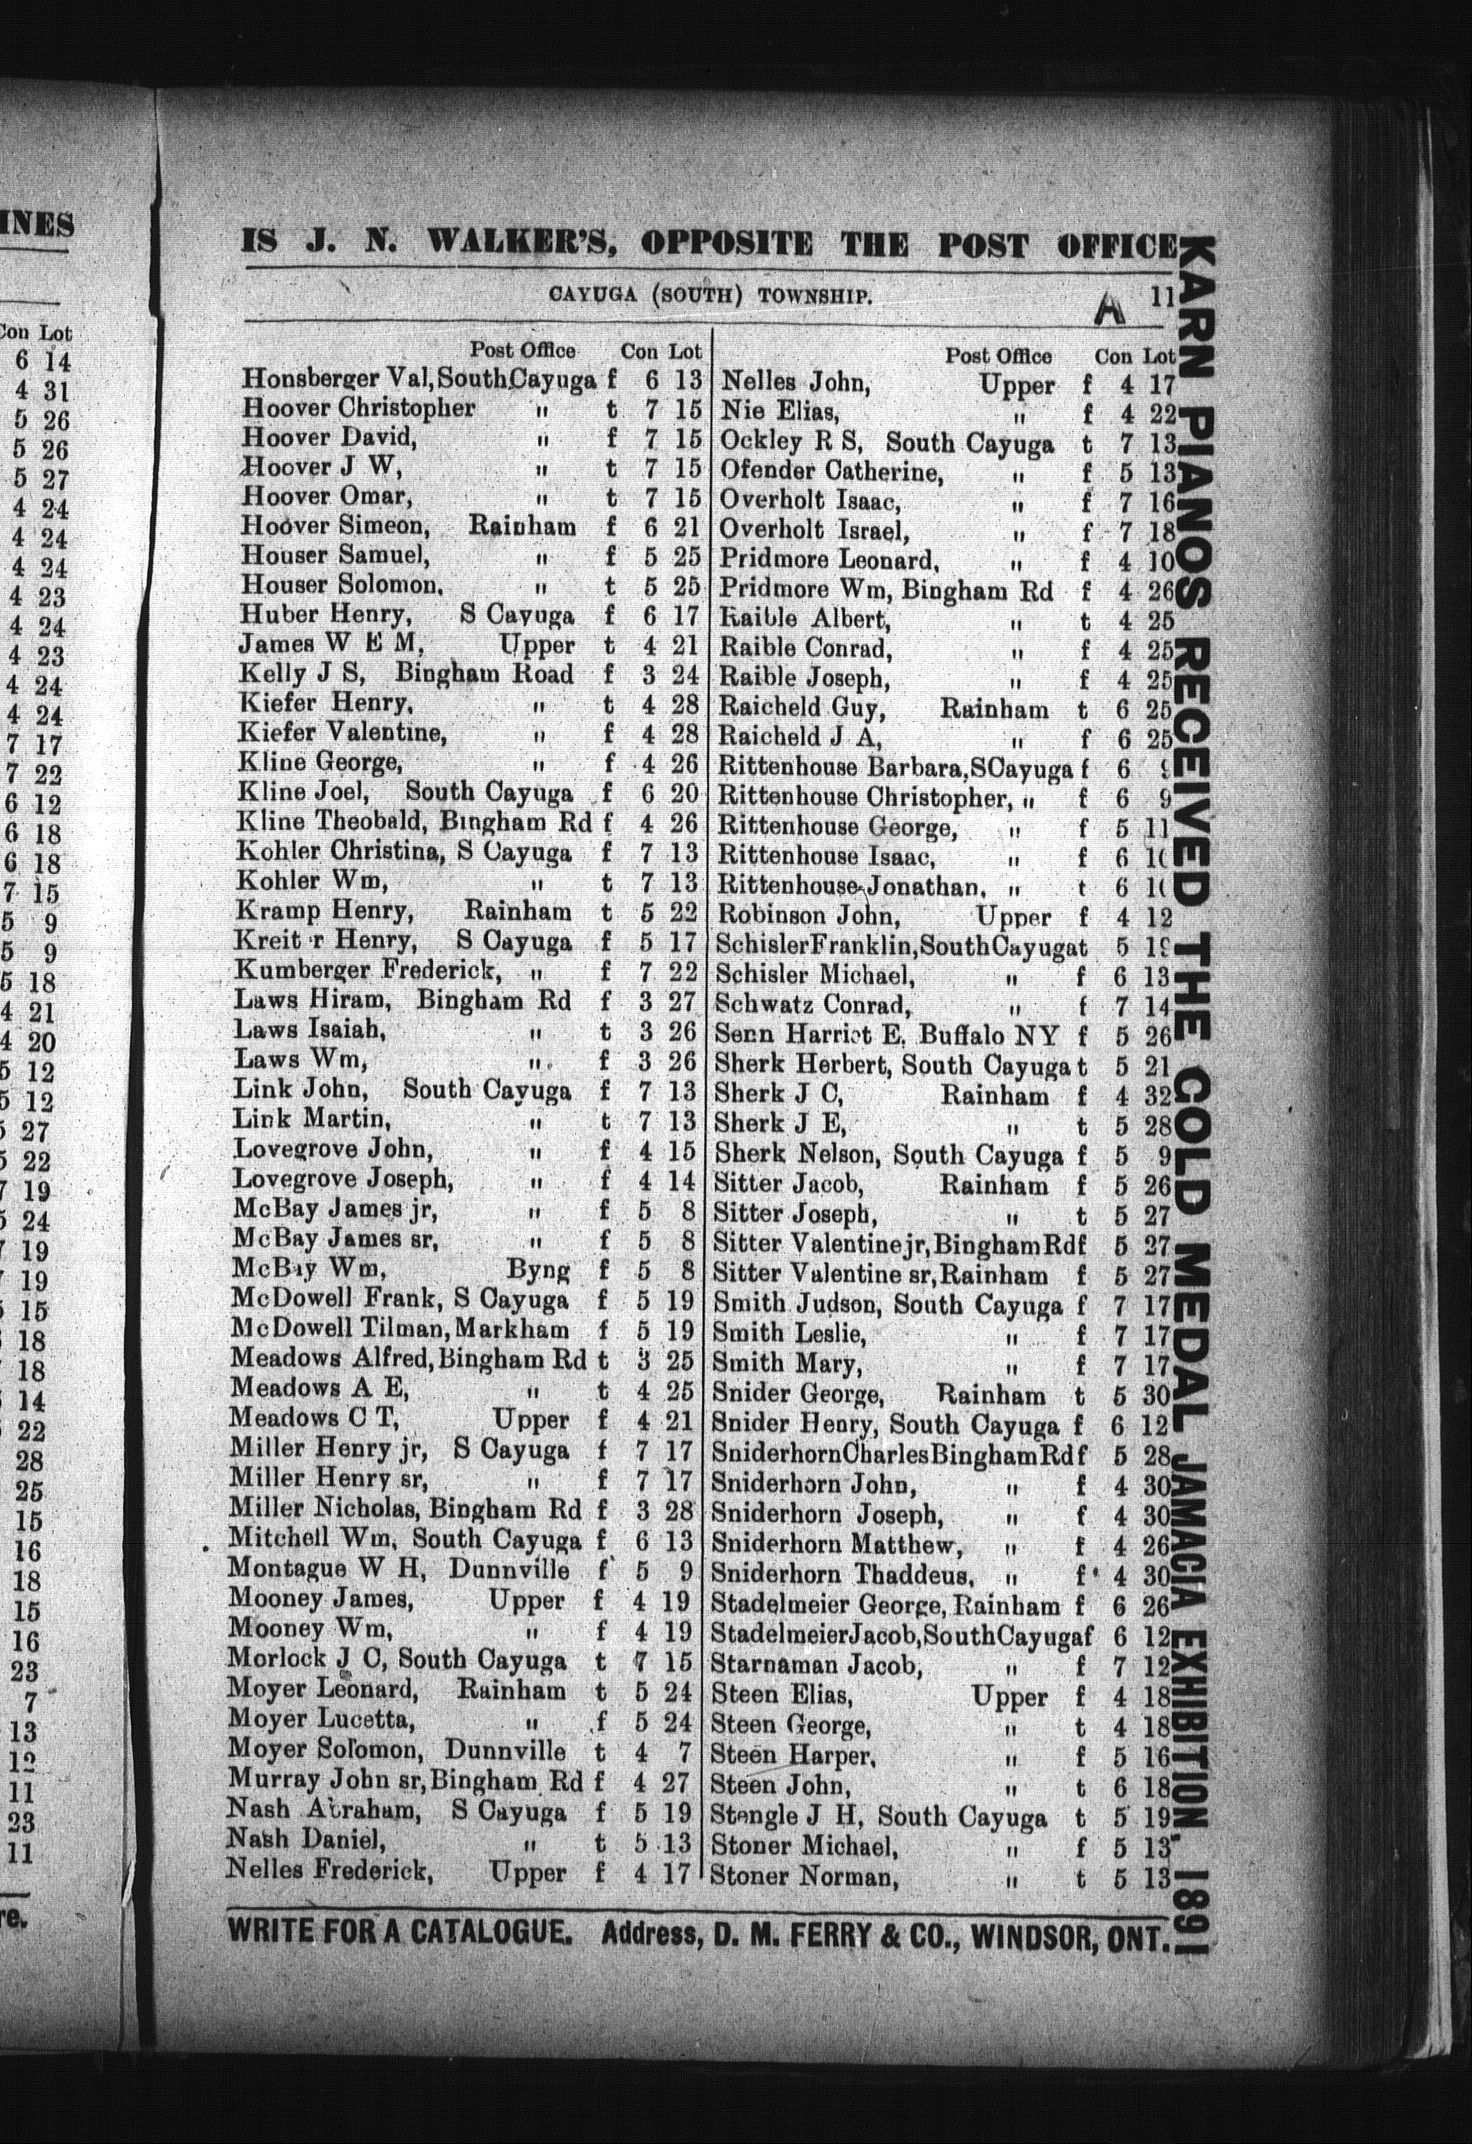 INES
Con Lot
6 14
4 31
5 26
5 26
5 27
4 24
4 24
4 24
4 23
4 24
4 23
4 24
4 24
7 17
7 22
6 12
6 18
6 18
7 15
5 9
5 9
5 18
4 21
4 20
5 12
5 12
27
22
19
24
19
19
15
18
18
14
22
28
25
15
16
18
15
16
23
7
13
12
11
23
11
re.
IS J. N. WALKER'S, OPPOSITE THE POST OFFICE
CAYUGA (SOUTH) TOWNSHIP. A 11
Post Office Con Lot
Honsberger Val, South Cayuga f 6 13
Hoover Christopher " t 7 15
Hoover David, " f 7 15
Hoover J W, " t 7 15
Hoover Omar, " t 7 15
Hoover Simeon, Rainham f 6 21
Houser Samuel, " f 5 25
Houser Solomon, " t 5 25
Huber Henry, S Cayuga f 6 17
James W E M, Upper t 4 21
Kelly J S, Bingham Road f 3 24
Kiefer Henry, " t 4 28
Kiefer Valentine, " f 4 28
Kline George, " f 4 26
Kline Joel, South Cayuga f 6 20
Kline Theobald, Bingham Rd f 4 26
Kohler Christina, S Cayuga f 7 13
Kohler Wm, " t 7 13
Kramp Henry, Rainham t 5 22
Kreit r Henry, S Cayuga f 5 17
Kumberger Frederick, " f 7 22
Laws Hiram, Bingham Rd f 3 27
Laws Isaiah, " t 3 26
Laws Wm, " f 3 26
Link John, South Cayuga f 7 13
Link Martin, " t 7 13
Lovegrove John, " f 4 15
Lovegrove Joseph, " f 4 14
McBay James jr, " f 5 8
McBay James sr, " f 5 8
McBay Wm, Byng f 5 8
McDowell Frank, S Cayuga f 5 19
McDowell Tilman, Markham f 5 19
Meadows Alfred, Bingham Rd t 3 25
Meadows A E, " t 4 25
Meadows C T, Upper f 4 21
Miller Henry jr, S Cayuga f 7 17
Miller Henry sr, " f 7 17
Miller Nicholas, Bingham Rd f 3 28
Mitchell Wm, South Cayuga f 6 13
Montague W H, Dunnville f 5 9
Mooney James, Upper f 4 19
Mooney Wm, " f 4 19
Morlock J C, South Cayuga t 7 15
Moyer Leonard, Rainham t 5 24
Moyer Lucetta, " f 5 24
Moyer Solomon, Dunnville t 4 7
Murray John sr, Bingham Rd f 4 27
Nash Abraham, S Cayuga f 5 19
Nash Daniel, " t 5 13
Nelles Frederick, Upper f 4 17
Post Office Con Lot
Nelles John, Upper f 4 17
Nie Elias, " f 4 22
Ockley R S, South Cayuga t 7 13
Ofender Catherine, " f 5 13
Overholt Isaac, " f 7 16
Overholt Israel, " f 7 18
Pridmore Leonard, " f 4 10
Pridmore Wm, Bingham Rd f 4 26
Raible Albert, " t 4 25
Raible Conrad, " f 4 25
Raible Joseph, " f 4 25
Raicheld Guy, Rainham t 6 25
Raicheld J A, " f 6 25
Rittenhouse Barbara, S Cayuga f 6
Rittenhouse Christopher, " f 6 9
Rittenhouse George, " f 5 11
Rittenhouse Isaac, " f 6
Rittenhouse Jonathan, " t 6
Robinson John, Upper f 4 12
Schisler Franklin, South Cayuga t 5
Schisler Michael, " f 6 13
Schwatz Conrad, " f 7 14
Senn Harriet E, Buffalo NY f 5 26
Sherk Herbert, South Cayuga t 5 21
Sherk J C, Rainham f 4 32
Sherk J E, " t 5 28
Sherk Nelson, South Cayuga f 5 9
Sitter Jacob, Rainham f 5 26
Sitter Joseph, " t 5 27
Sitter Valentine jr, Bingham Rd f 5 27
Sitter Valentine sr, Rainham f 5 27
Smith Judson, South Cayuga f 7 17
Smith Leslie, " f 7 17
Smith Mary, " f 7 17
Snider George, Rainham t 5 30
Snider Henry, South Cayuga f 6 12
Sniderhorn Charles Bingham Rd f 5 28
Sniderhorn John, " f 4 30
Sniderhorn Joseph, " f 4 30
Sniderhorn Matthew, " f 4 26
Sniderhorn Thaddeus, " f 4 30
Stadelmeier George, Rainham f 6 26
Stadelmeier Jacob, South Cayuga f 6 12
Starnaman Jacob, " f 7 12
Steen Elias, Upper f 4 18
Steen George, " t 4 18
Steen Harper, " f 5 16
Steen John, " t 6 18
Stengle J H, South Cayuga t 5 19
Stoner Michael, " f 5 13
Stoner Norman, " t 5 13
WRITE FOR A CATALOGUE. Address, D. M. FERRY & CO., WINDSOR, ONT.
KARN PIANOS RECEIVED THE GOLD MEDAL JAMACIA EXHIBITION 1891